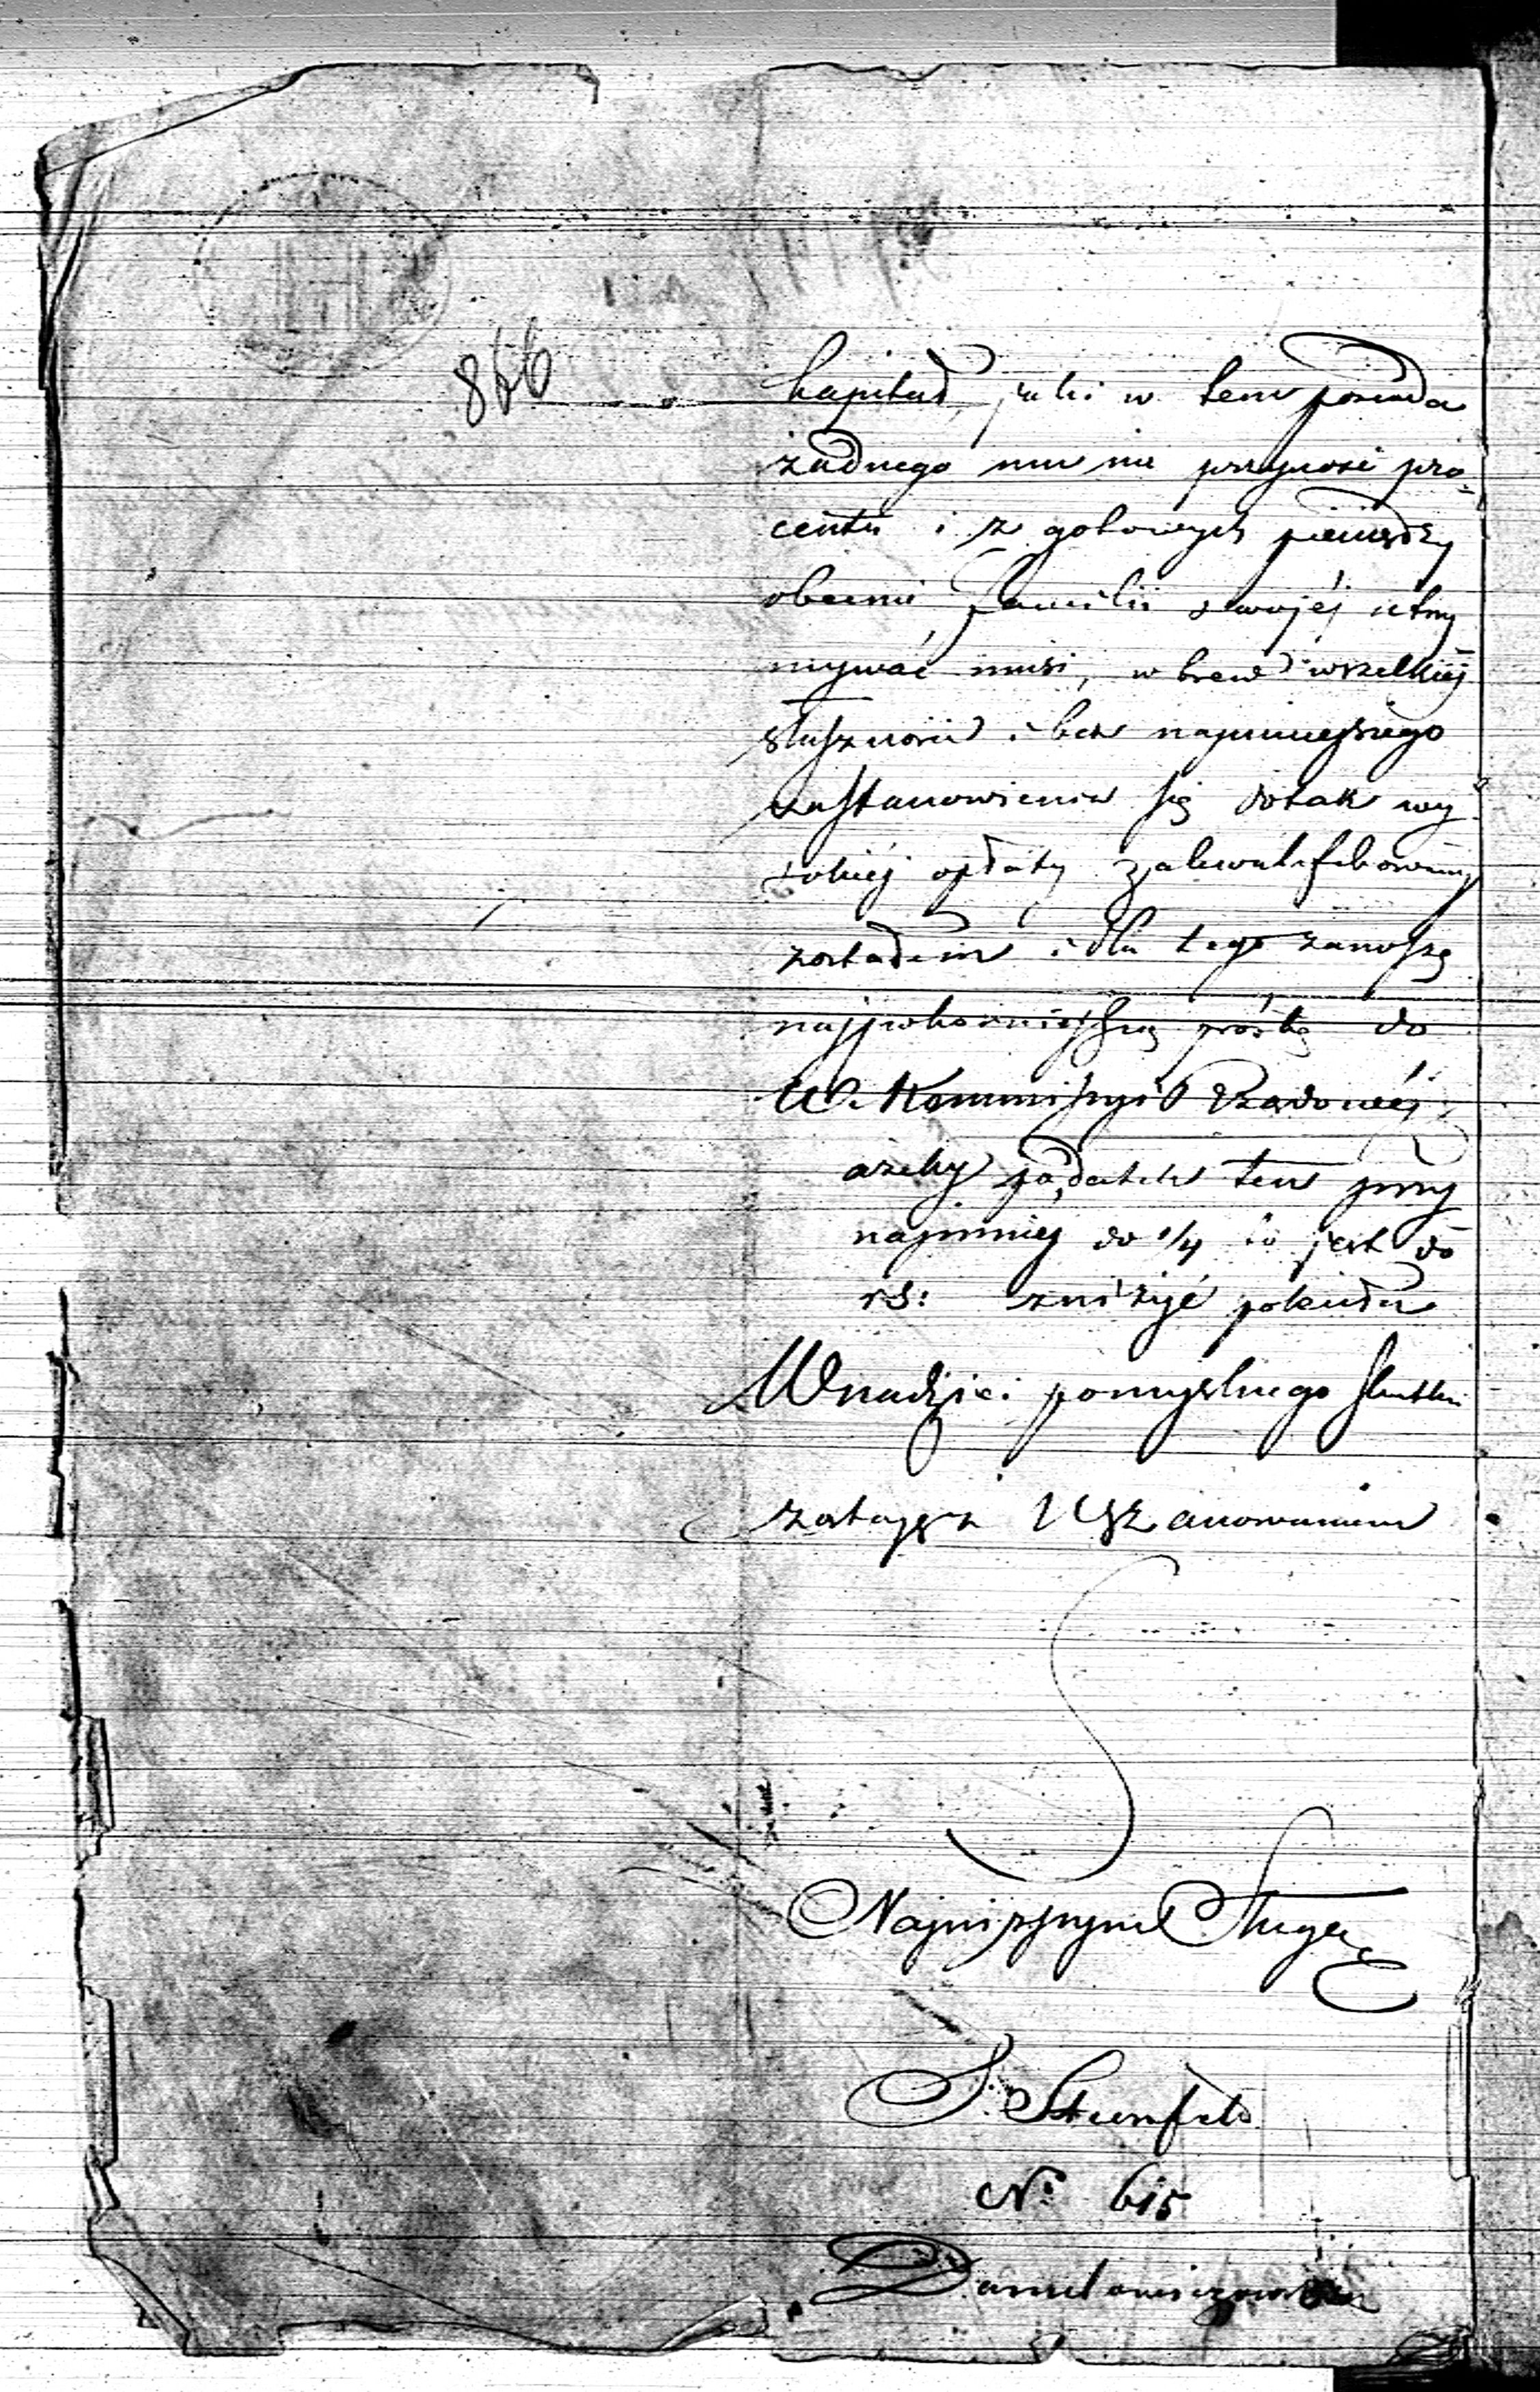 866
kapitał, jaki w tem posiada
żadnego mu nie przynosi pro-
centu i z gotowych pieniędzy
obecnie familii swojéj utrzy
mywać musi, w brew wszelkiéj
słuszności i bez najmniejszego
zastanowienia się do tak wy-
sokiéj opłaty zakwalifikowany
zostałem i dla tego zanoszę
najpokorniejszą prośbę do
W. Kommissyi Rządowéj
ażeby podatek ten przy
najmniéj do 1/4 to jest do
rs: zniżyć poleciła
W nadziei pomyślnego skutku
zostaję z Uszanowaniem
Najniższym Sługą
S. Sternfeld
No 615
Daniłowiczowska